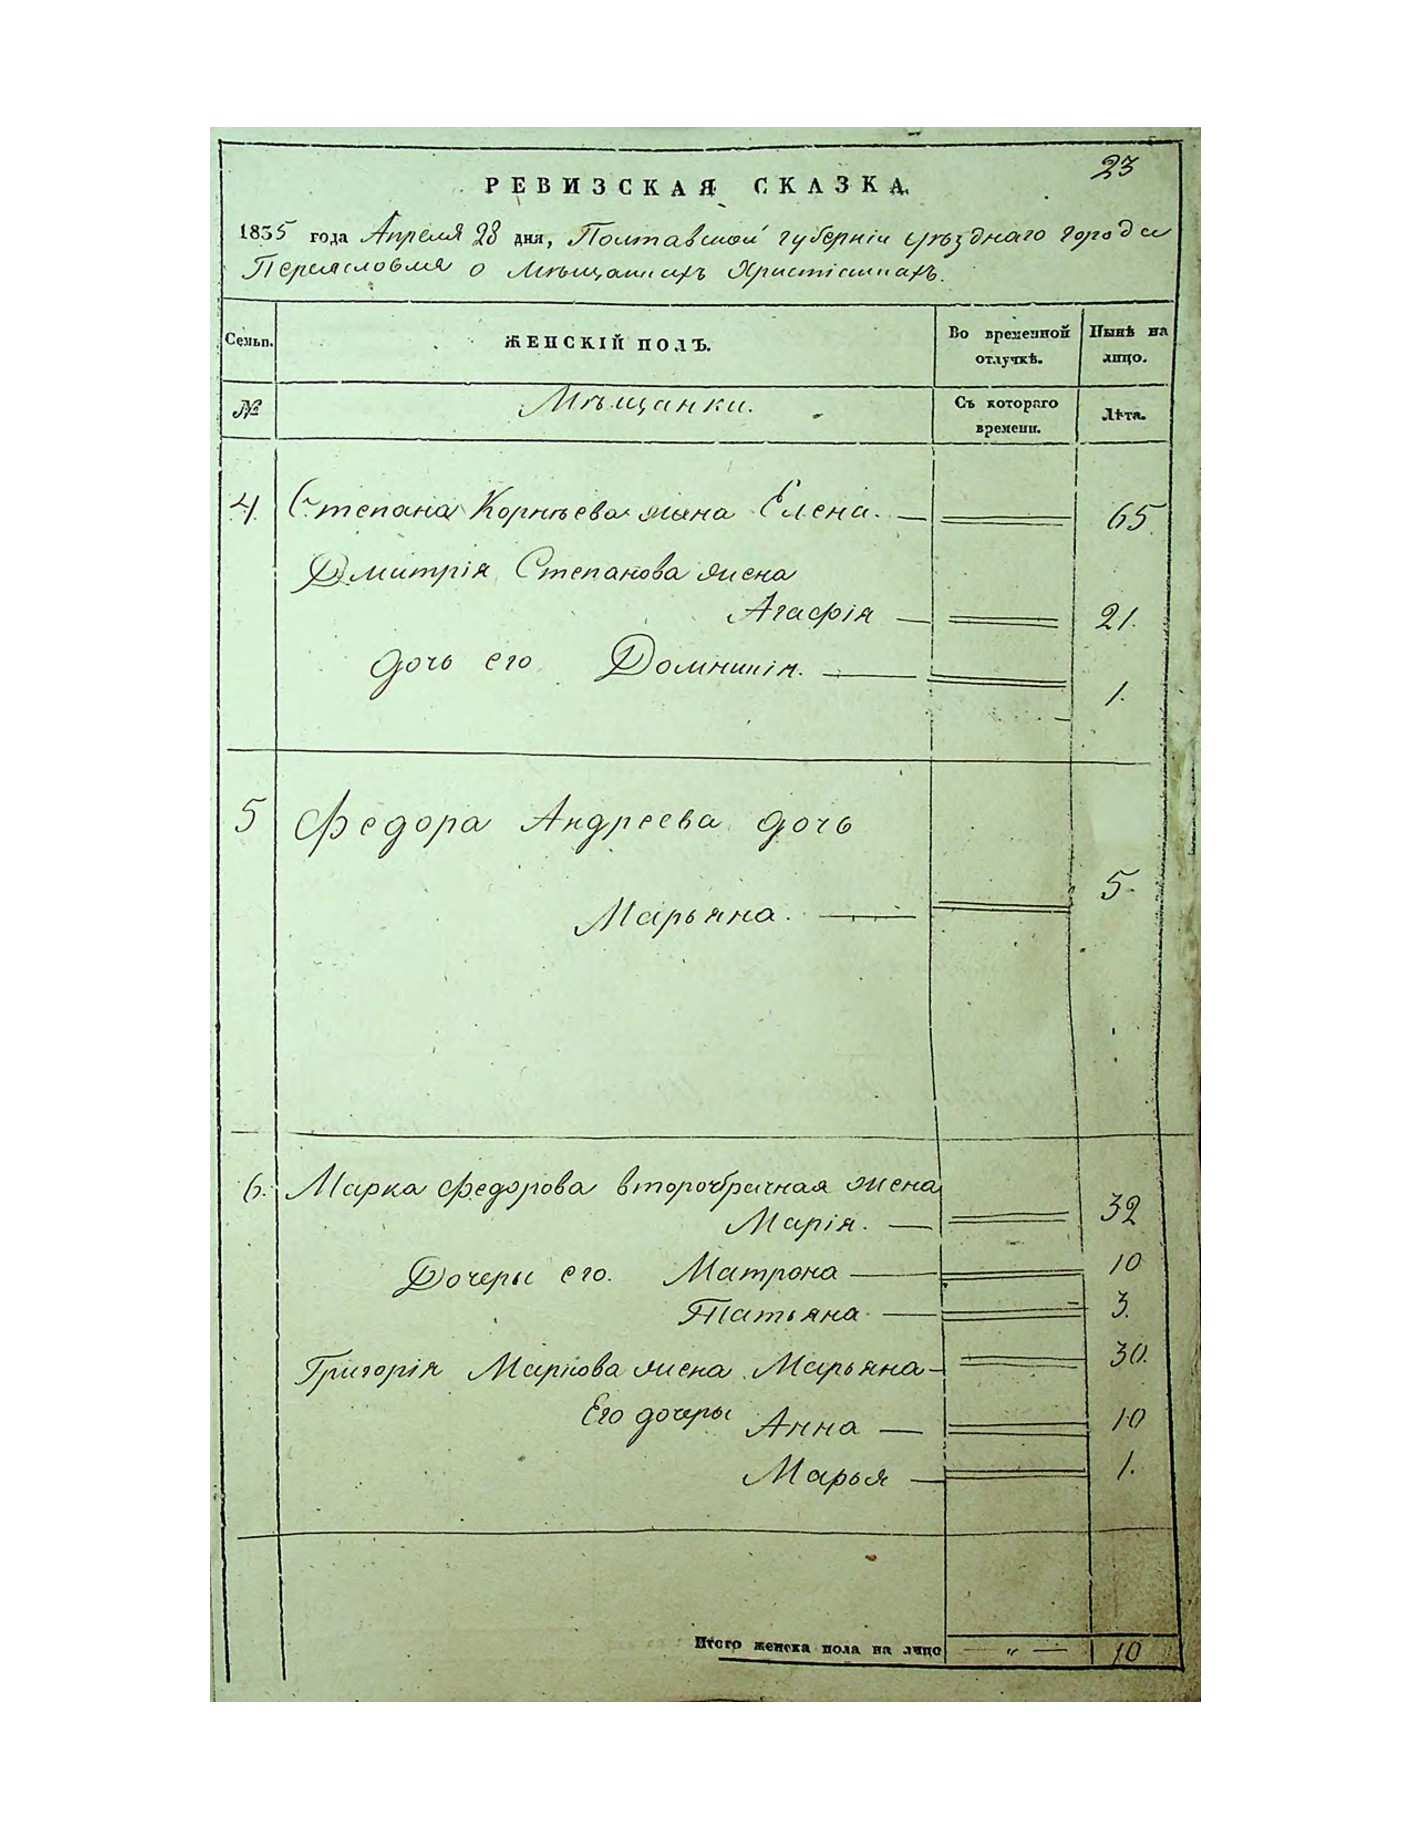 23
РЕВИЗСКАЯ СКАЗКА.
1835 года Апреля 28 дня, Полтавской губерніи уѣзднаго города
Переяславля о Мѣщанахъ Христіанахъ.
Семьи.
ЖЕНСКІЙ ПОЛЪ.
Во временной отлучкѣ.
Нынѣ на лицо.
№
Мѣщанки.
Съ котораго времени.
Лѣта.
4. Степана Корнѣева жена Елена. — 65.
Дмитрія Степанова жена
Агафія — 21.
дочь его Домникія. — 1.
5 Федора Андреева дочь
Марьяна. — 5.
6. Марка Федорова второбрачная жена
Марія. — 32
Дочеры его. Матрона — 10
Татьяна — 3.
Григорія Маркова жена Марьяна — 30.
Его дочеры Анна — 10
Марья — 1.
Итого женска пола на лицо — „ — 10